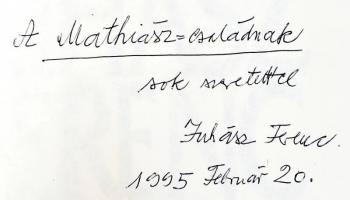 A Mathiász=családnak
sok szeretettel
Juhász Ferenc.
1995 Február 20.